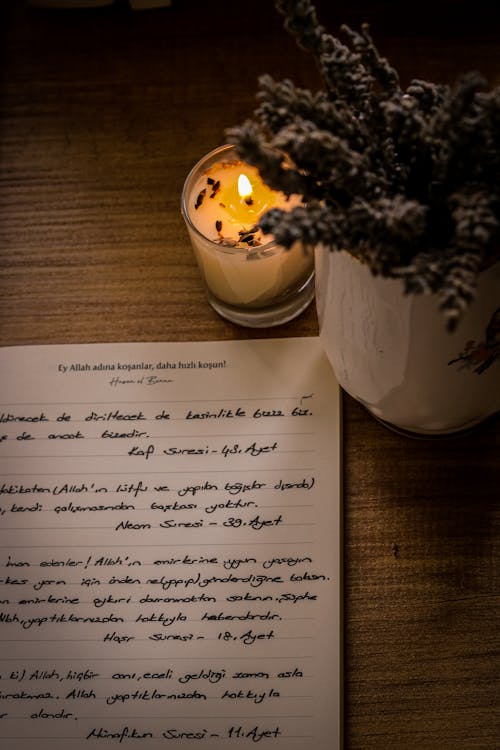 Ey Allah adına koşanlar, daha hızlı koşun!
Hasan el Benna
de diriltecek de kesinlikle bizz biz.
de ancak bizedir.
Kaf Suresi - 43. Ayet
(Allah'ın lütfu ve yapılan bağışlar dışında)
, kendi çalışmasından başkası yoktur.
Necm Suresi - 39. Ayet
iman edenler! Allah'ın emirlerine uygun yaşayın
yarın için önden ne(yapıp) gönderdiğine baksın.
emirlerine aykırı davranmaktan sakının. Şüphe
yaptıklarınızdan hakkıyla haberdardır.
Haşr Suresi - 18. Ayet
Allah, hiçbir canı, eceli geldiği zaman asla
. Allah yaptıklarınızdan hakkıyla
olandır.
Münafikun Suresi - 11. Ayet